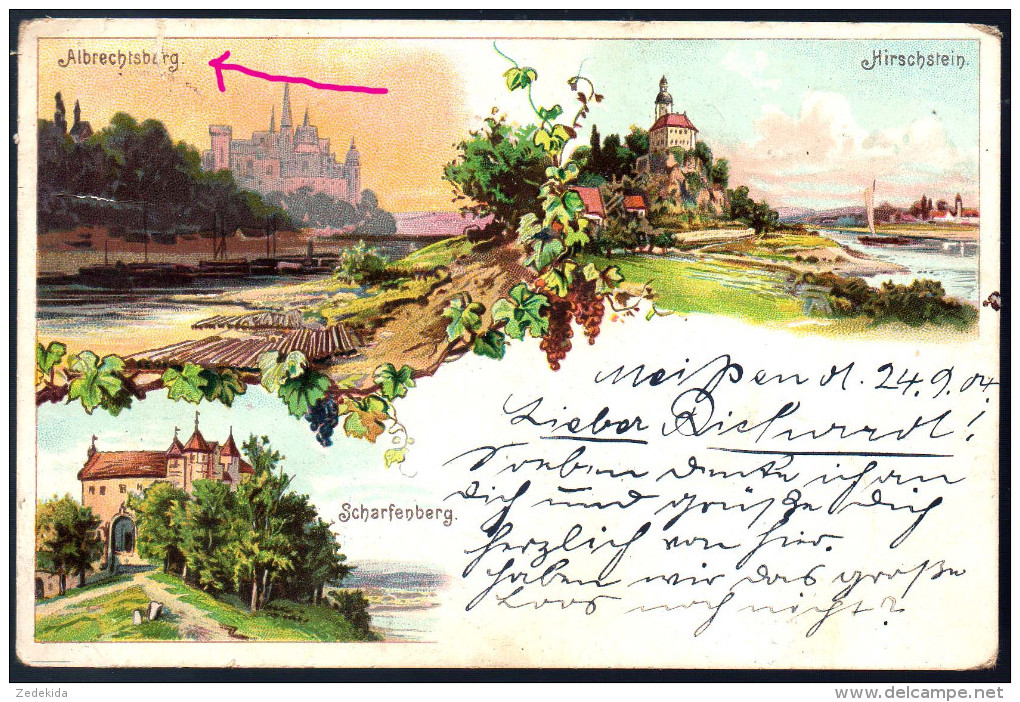 Albrechtsburg.
Hirschstein.
Scharfenberg.
Meißen d. 24.9.04
Lieber Richardt!
Soeben denke ich an
Dich und grüße Dich
herzlich von hier.
haben wir das große
Loos noch nicht?
Zedekida
delcampe.net